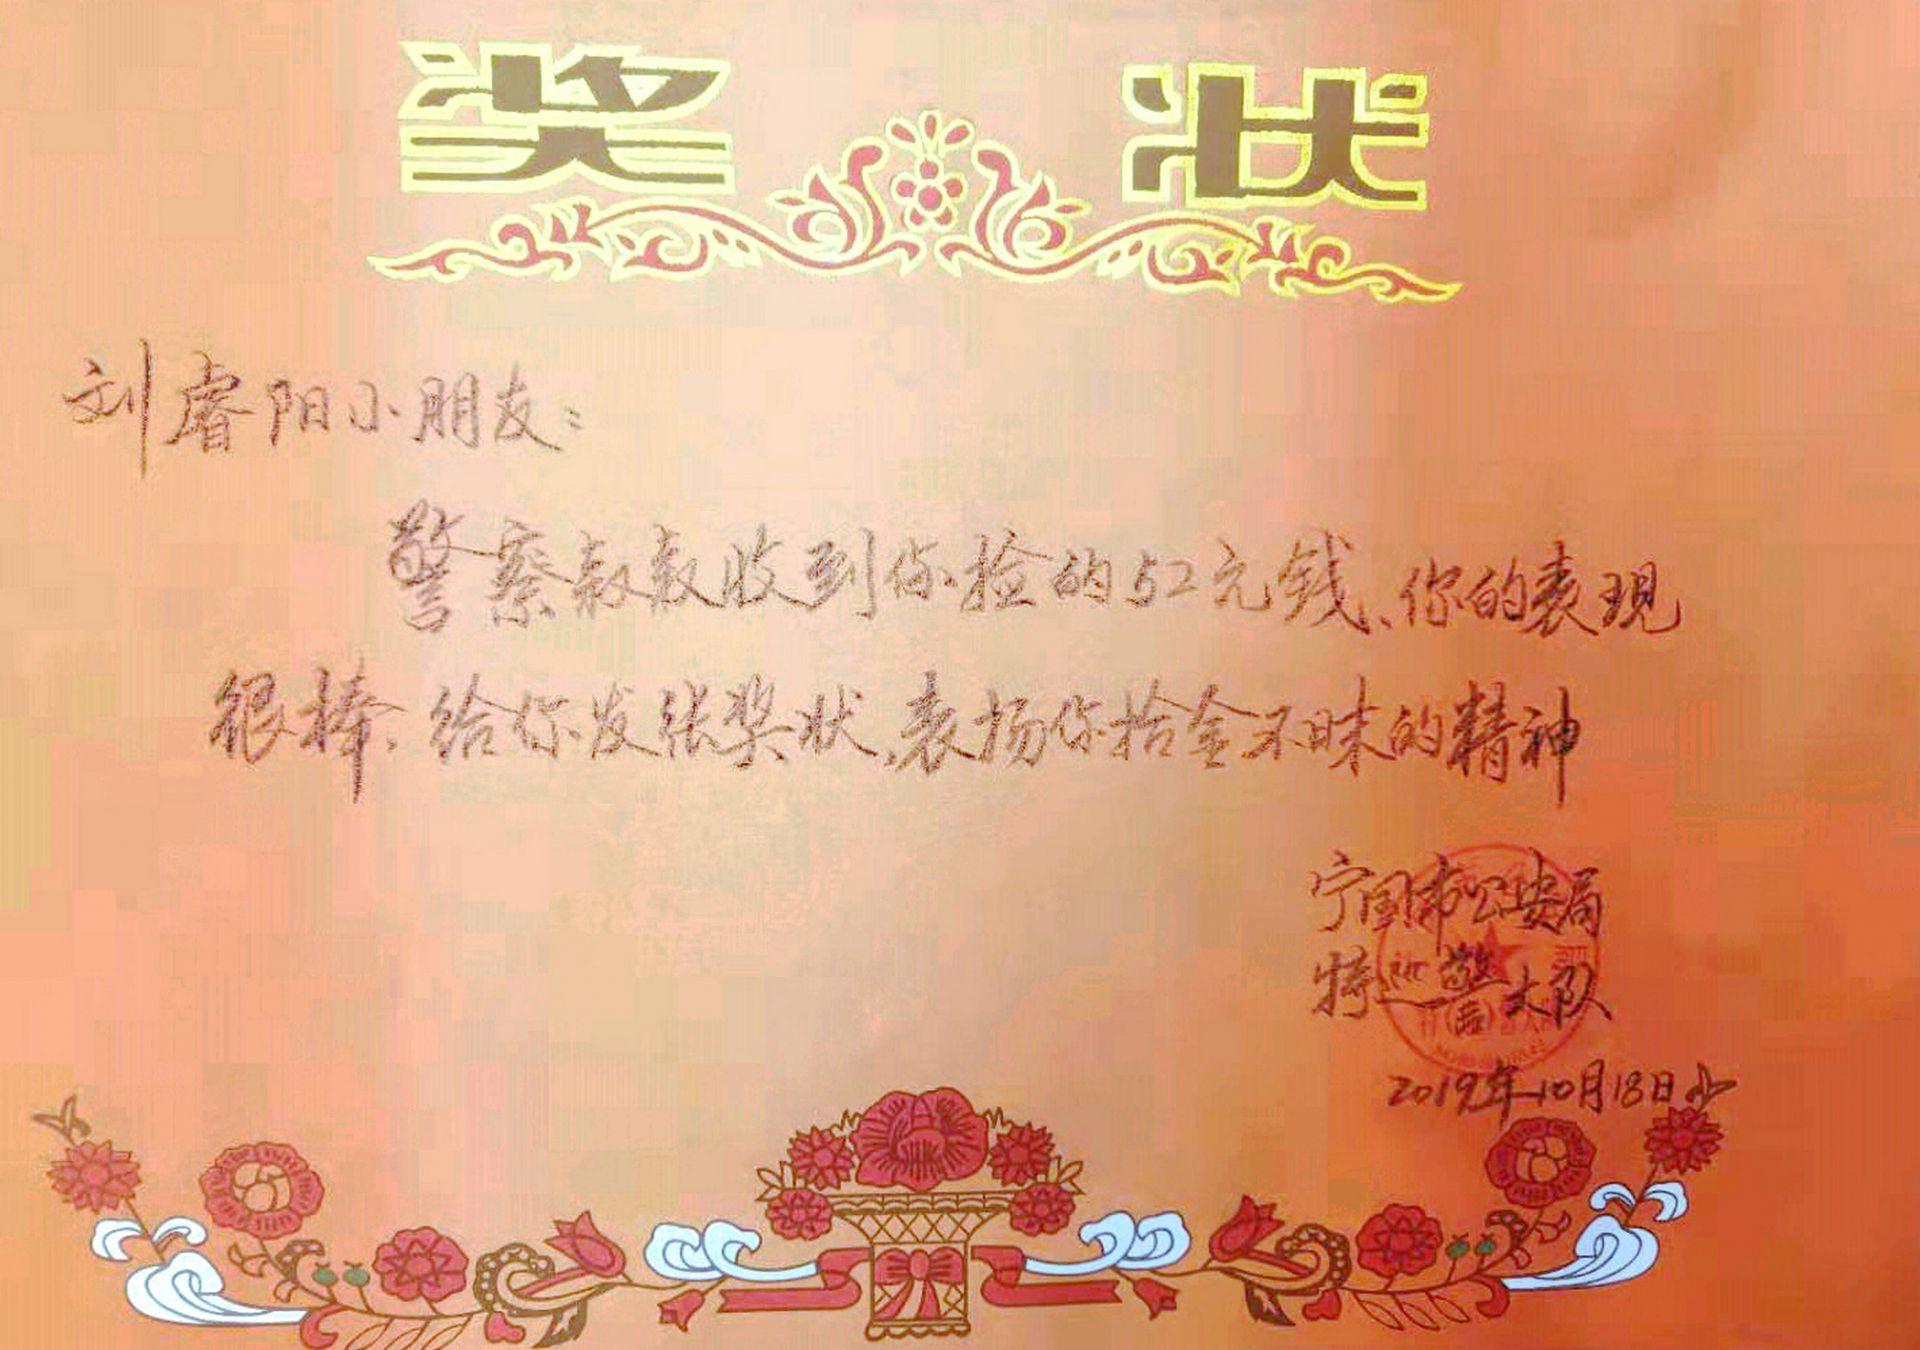 奖状
刘睿阳小朋友：
警察叔叔收到你捡的52元钱、你的表现
很棒、给你发张奖状、表扬你拾金不昧的精神
宁国市公安局
特巡警大队
2019年10月18日